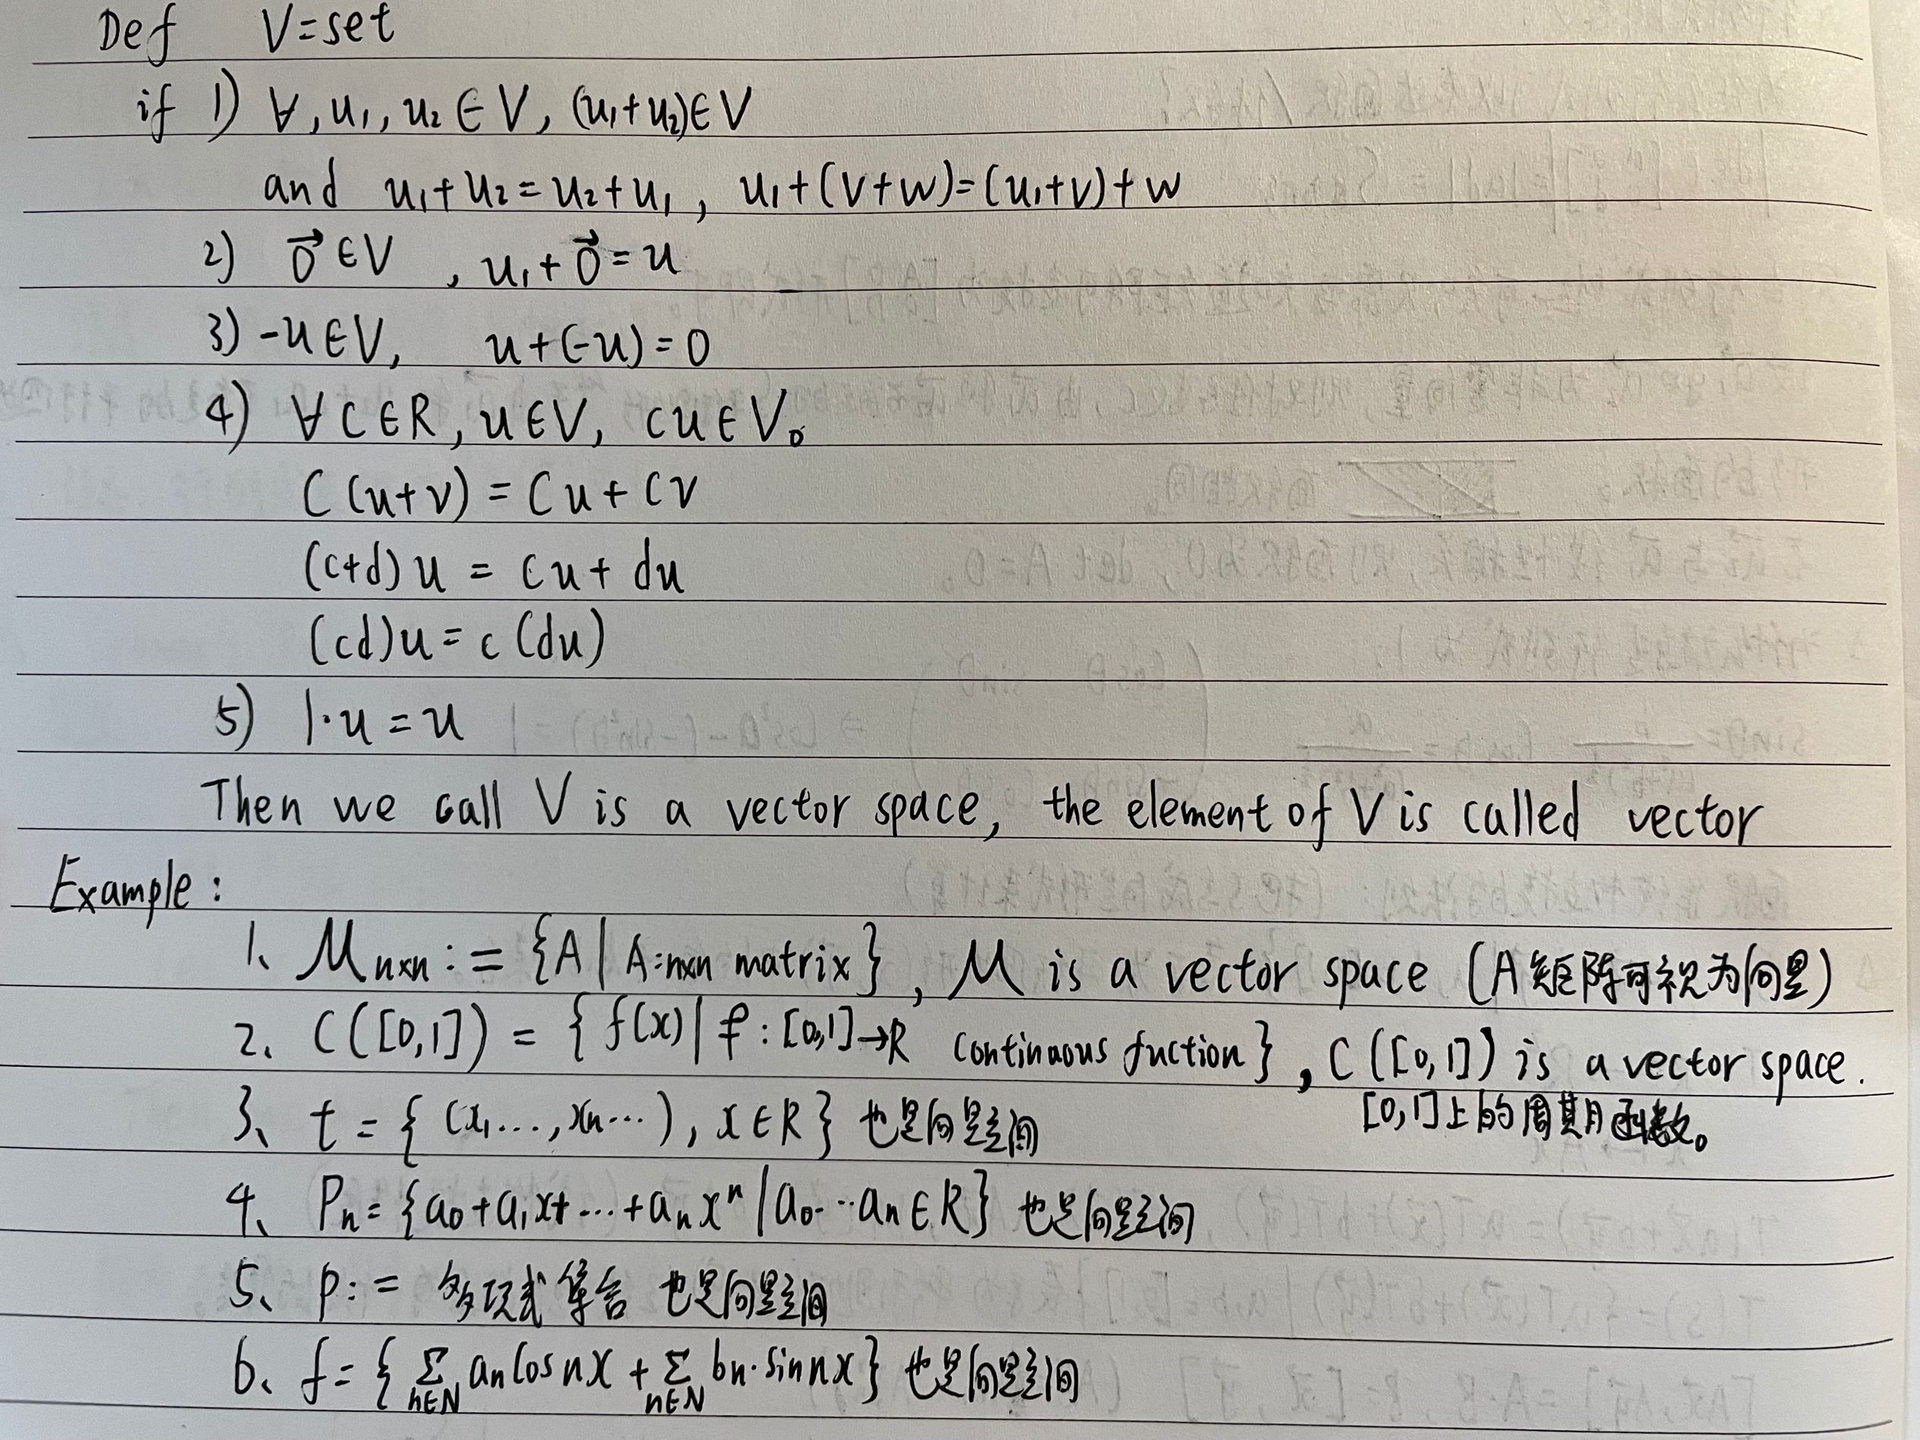 Def V=set
if 1) ∀,u₁,u₂∈V,(u₁+u₂)∈V
and u₁+u₂=u₂+u₁, u₁+(v+w)=(u₁+v)+w
2) 0⃗∈V , u₁+0⃗=u
3) -u∈V, u+(-u)=0
4) ∀C∈R,u∈V, cu∈V。
C(u+v)=Cu+CV
(c+d)u=cu+du
(cd)u=c(du)
5) 1·u=u
Then we call V is a vector space, the element of V is called vector
Example:
1、Mₙₓₙ:={A|A:n×n matrix}, M is a vector space (A矩阵可视为向量)
2、C([0,1])={f(x)|f:[0,1]→R continuous fuction},C([0,1]) is a vector space.
[0,1]上的周期函数。
3、t={(x₁...,xₙ...),x∈R}也是向量空间
4、Pₙ={a₀+a₁x+...+aₙxⁿ|a₀...aₙ∈R}也是向量空间
5、p:=多项式集合 也是向量空间
6、f={Σn∈N aₙcosnx+Σn∈N bₙ·sinnx}也是向量空间